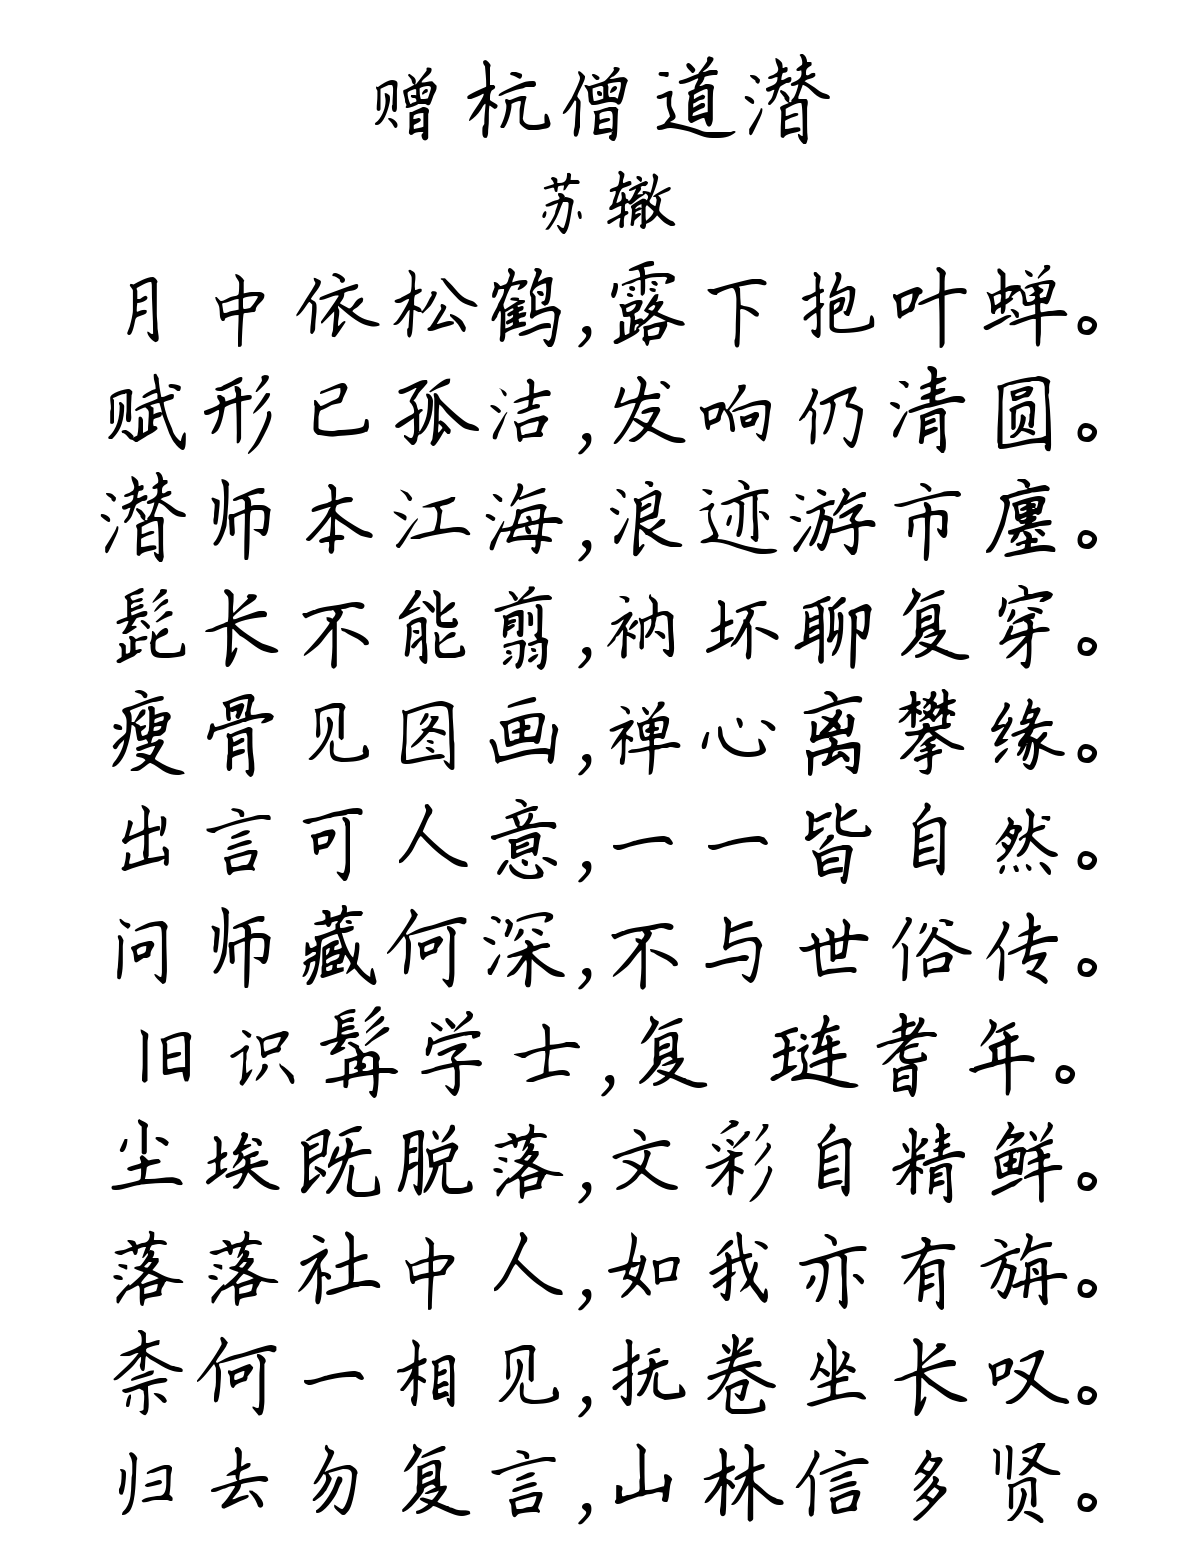 赠杭僧道潜
苏辙
月中依松鹤,露下抱叶蝉。
赋形已孤洁,发响仍清圆。
潜师本江海,浪迹游市廛。
髭长不能翦,衲坏聊复穿。
瘦骨见图画,禅心离攀缘。
出言可人意,一一皆自然。
问师藏何深,不与世俗传。
旧识髯学士,复 琏耆年。
尘埃既脱落,文彩自精鲜。
落落社中人,如我亦有旃。
柰何一相见,抚卷坐长叹。
归去勿复言,山林信多贤。